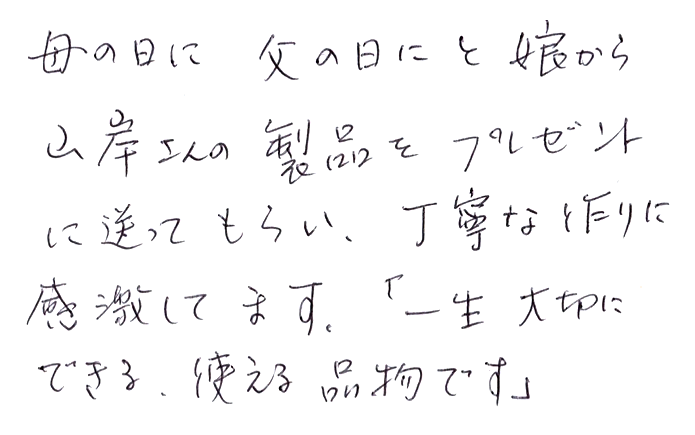 母の日に 父の日にと娘から
山岸さんの製品をプレゼント
に送ってもらい、丁寧な作りに
感激してます。「一生大切に
できる、使える品物です」